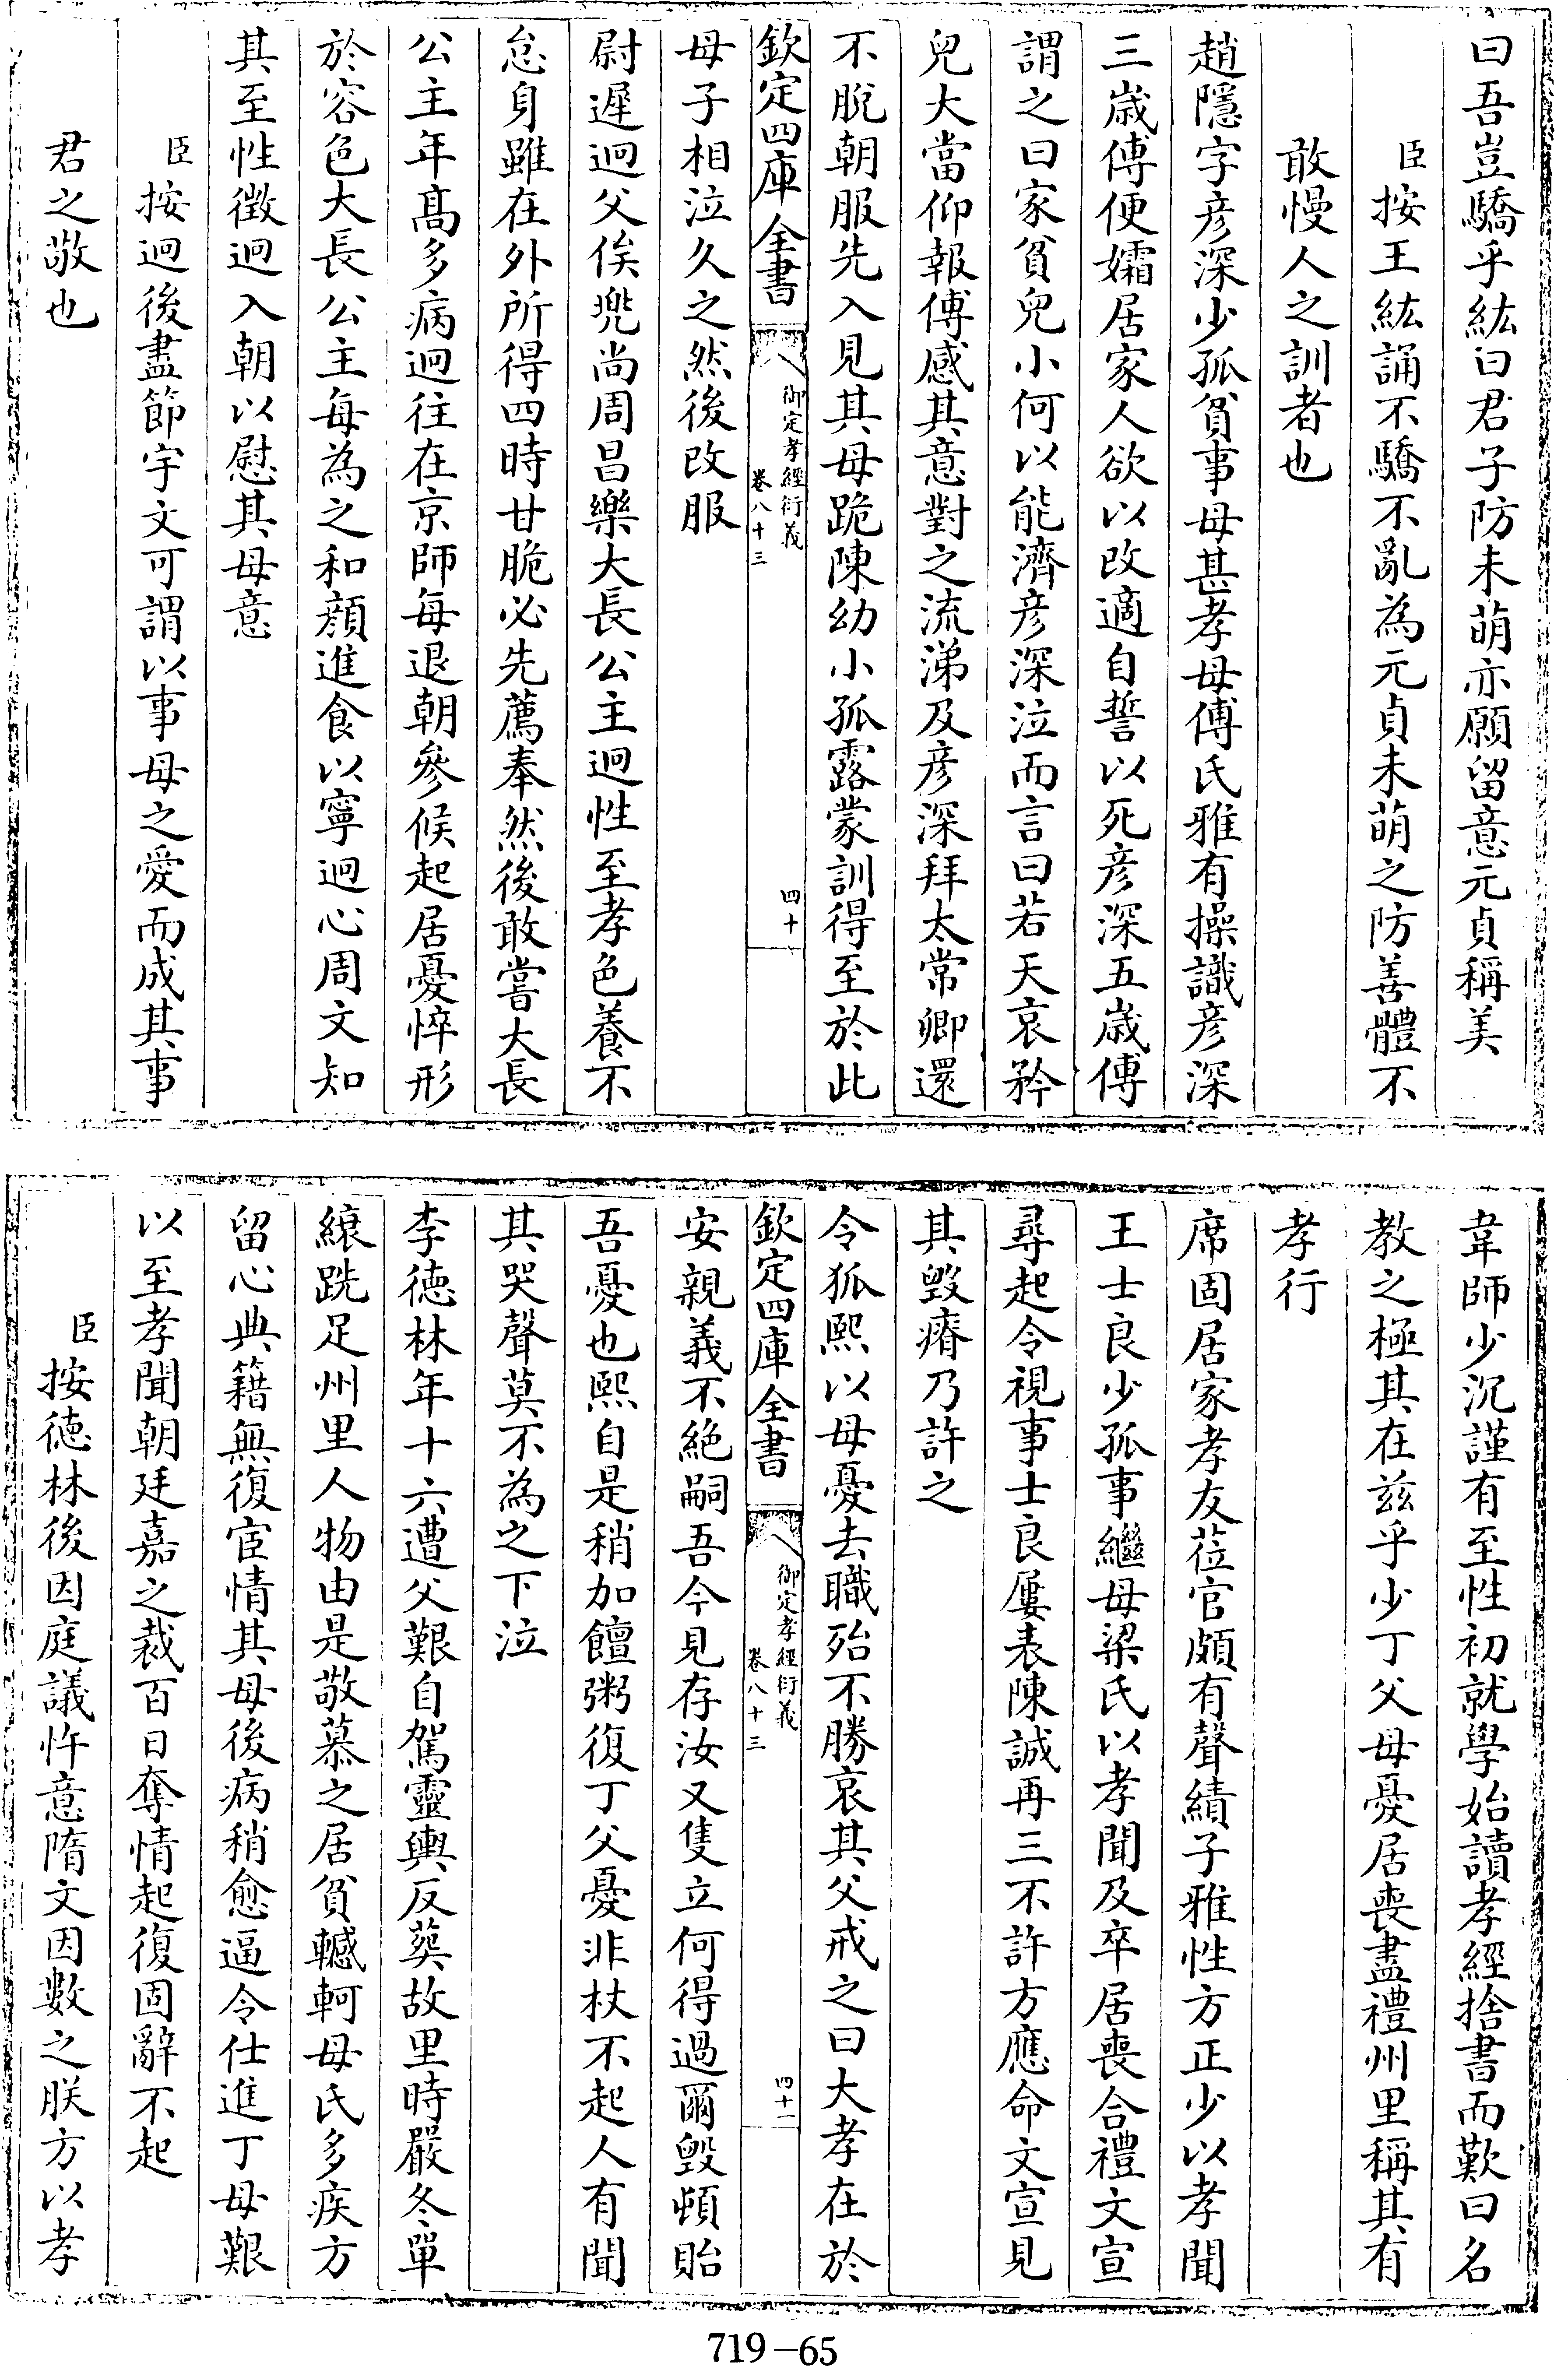 曰吾豈驕乎紘曰君子防未萌亦願留意元貞稱美
臣按王紘誦不驕不亂為元貞未萌之防善體不
敢慢人之訓者也
趙隱字彦深少孤貧事母甚孝母傅氏雅有操識彦深
三歲傅便孀居家人欲以改適自誓以死彦深五歲傅
謂之曰家貧兒小何以能濟彦深泣而言曰若天哀矜
兒大當仰報傅感其意對之流涕及彦深拜太常卿還
不脫朝服先入見其母跪陳幼小孤露蒙訓得至於此
欽定四庫全書
御定孝經衍義
卷八十三
四十
母子相泣久之然後改服
尉遲迥父俟兠尚周昌樂大長公主迥性至孝色養不
怠身雖在外所得四時甘脆必先薦奉然後敢嘗大長
公主年髙多病迥往在京師每退朝參候起居憂悴形
於容色大長公主每為之和顔進食以寧迥心周文知
其至性徵迥入朝以慰其母意
臣按迥後盡節宇文可謂以事母之愛而成其事
君之敬也
韋師少沉謹有至性初就學始讀孝經捨書而歎曰名
教之極其在兹乎少丁父母憂居喪盡禮州里稱其有
孝行
席固居家孝友莅官頗有聲績子雅性方正少以孝聞
王士良少孤事繼母梁氏以孝聞及卒居喪合禮文宣
尋起令視事士良屢表陳誠再三不許方應命文宣見
其毁瘠乃許之
令狐熙以母憂去職殆不勝哀其父戒之曰大孝在於
欽定四庫全書
御定孝經衍義
卷八十三
四十一
安親義不絶嗣吾今見存汝又隻立何得過爾毁頓貽
吾憂也熙自是稍加饘粥復丁父憂非杖不起人有聞
其哭聲莫不為之下泣
李徳林年十六遭父艱自駕靈輿反葬故里時嚴冬單
縗跣足州里人物由是敬慕之居貧轗軻母氏多疾方
留心典籍無復宦情其母後病稍愈逼令仕進丁母艱
以至孝聞朝廷嘉之裁百日奪情起復固辭不起
臣按徳林後因庭議忤意隋文因數之朕方以孝
719-65